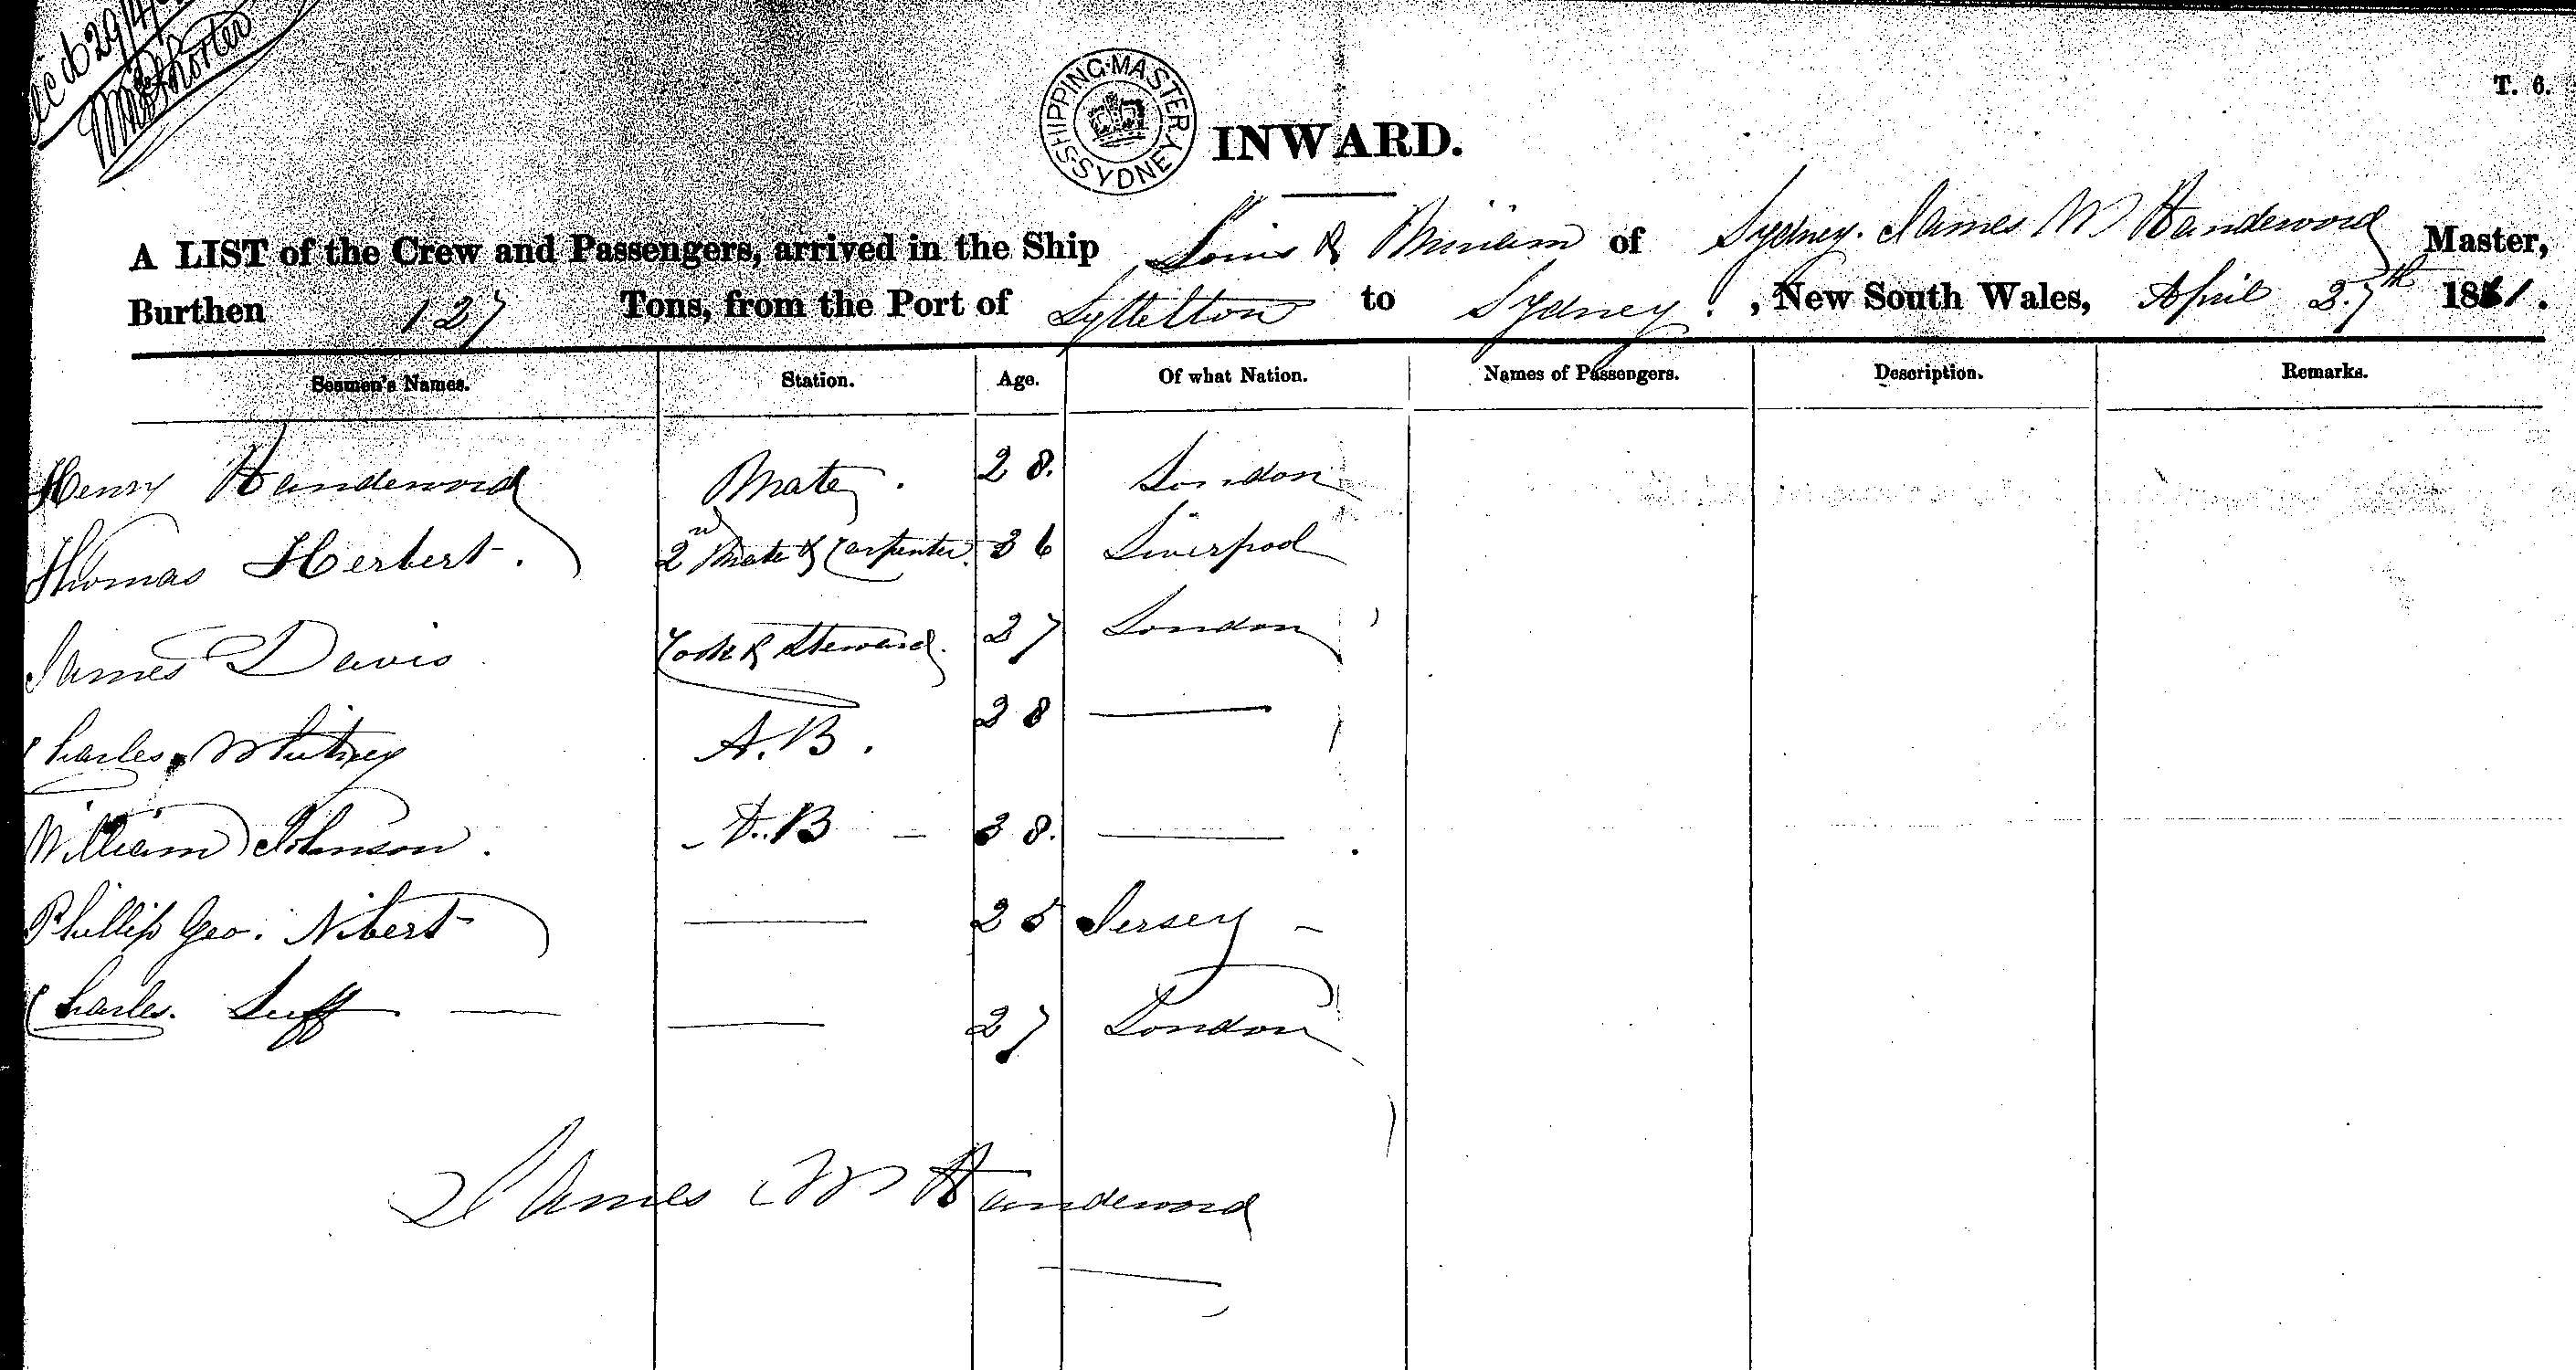 29/4/
SHIPPING MASTER SYDNEY
T. 6.
INWARD.
A LIST of the Crew and Passengers, arrived in the Ship Louis & Miriam of Sydney. James W Handeword Master,
Burthen 127 Tons, from the Port of Lyttelton to Sydney, New South Wales, April 27th 1861.
Seamen's Names. Station. Age. Of what Nation. Names of Passengers. Description. Remarks.
Henry Handeword Mate. 28. London
Thomas Herbert. 2nd Mate & Carpenter. 36 Liverpool
James Davis Cook & Steward. 27 London
Charles Whitney A.B. 28 —
William Johnson. A.B — 38. —
Phillip Geo. Nibert — 25 Jersey —
Charles. Luff — — 27 London
James W Handeword